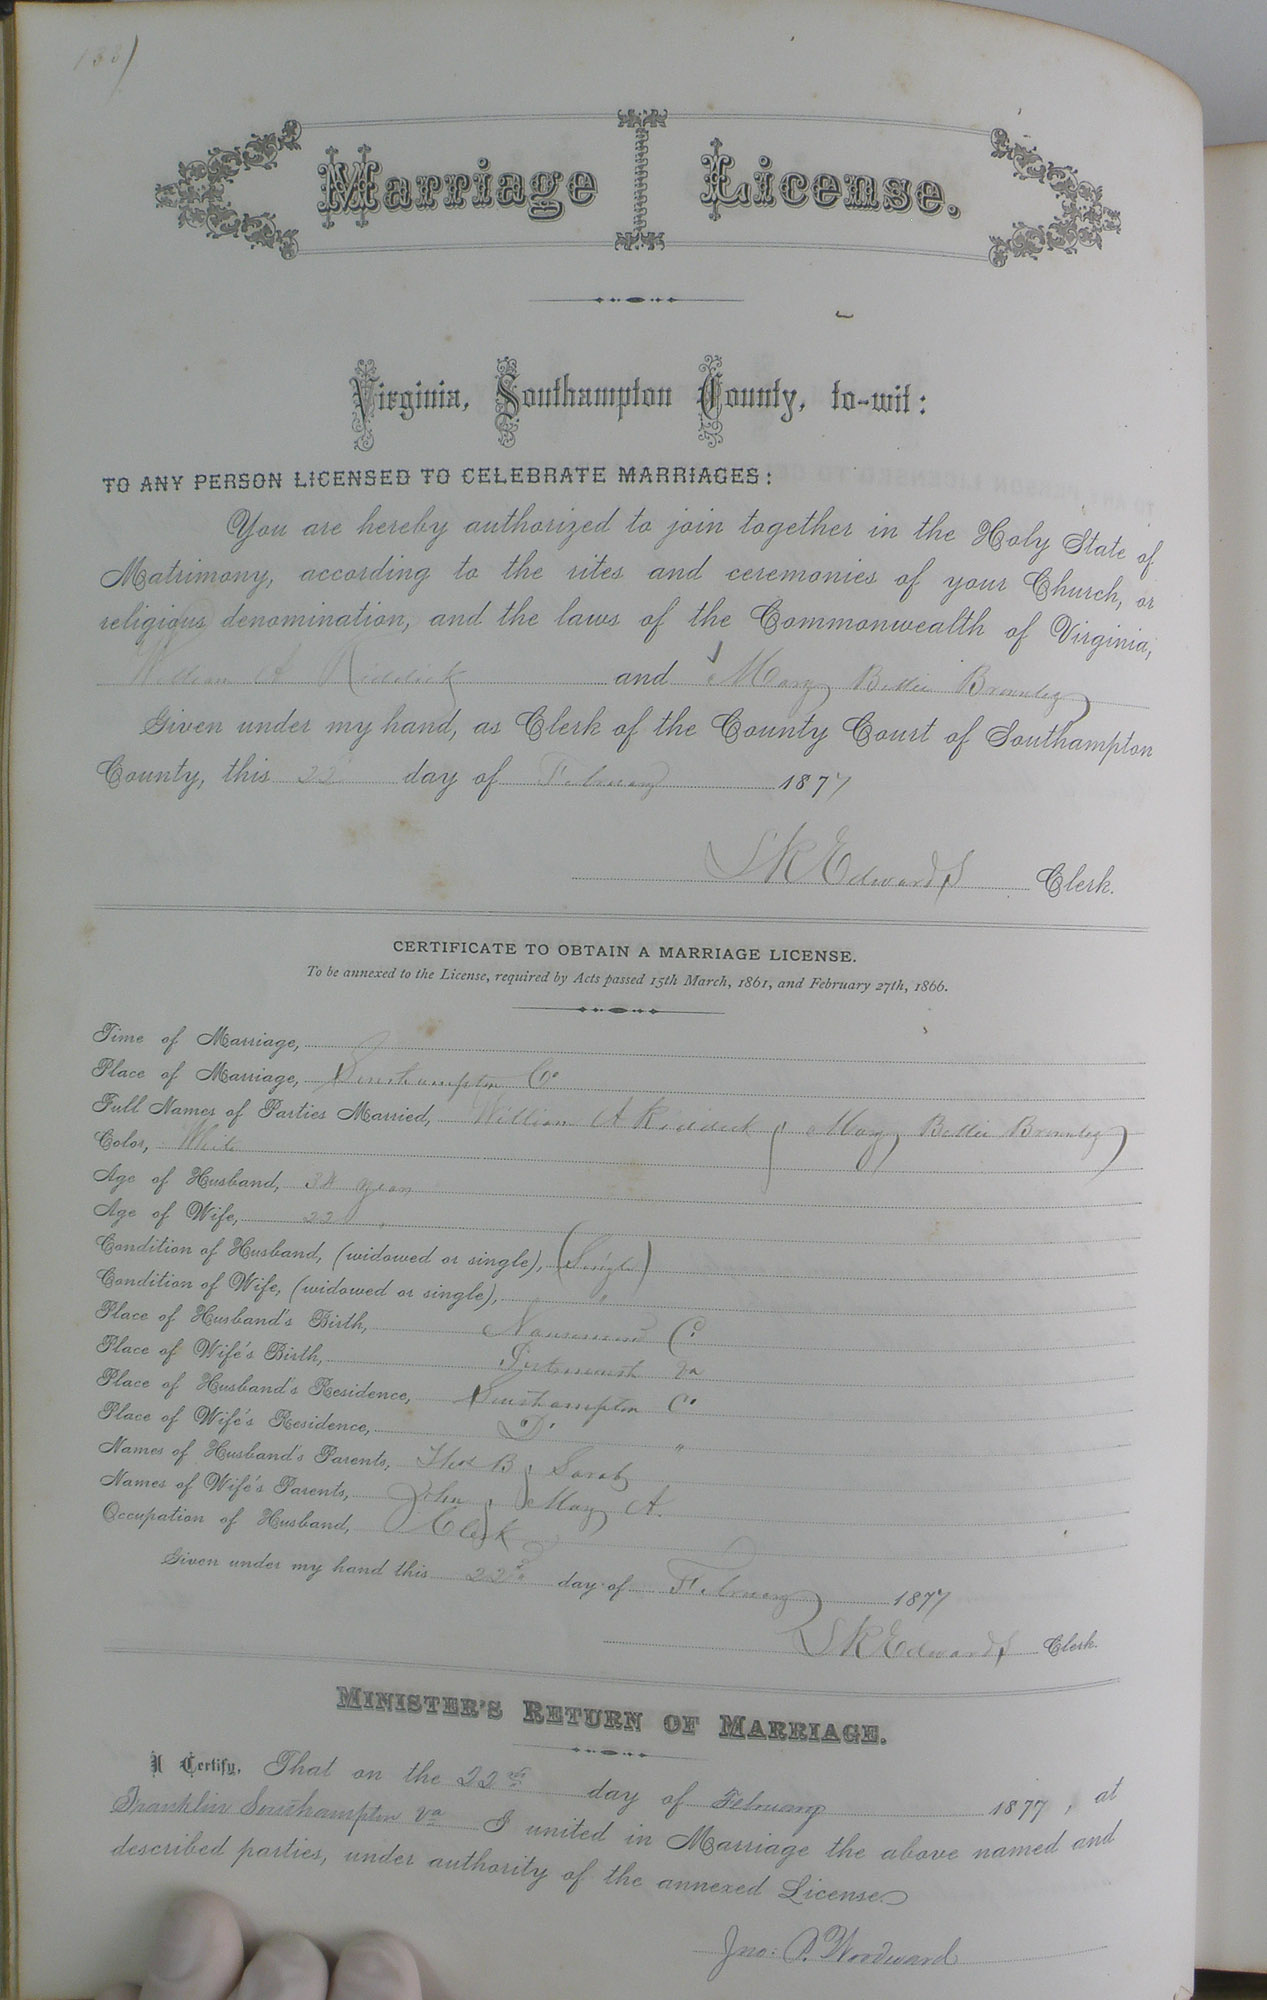 Marriage License.
Virginia, Southampton County, to-wit:
TO ANY PERSON LICENSED TO CELEBRATE MARRIAGES:
You are hereby authorized to join together in the Holy State of
Matrimony, according to the rites and ceremonies of your Church, or
religious denomination, and the laws of the Commonwealth of Virginia,
William A Riddick and Mary Bettie Brownley
Given under my hand, as Clerk of the County Court of Southampton
County, this 22 day of February 1877
S K Edwards Clerk.
CERTIFICATE TO OBTAIN A MARRIAGE LICENSE.
To be annexed to the License, required by Acts passed 15th March, 1861, and February 27th, 1866.
Time of Marriage,
Place of Marriage, Southampton Co
Full Names of Parties Married, William A Riddick & Mary Bettie Brownley
Color, White
Age of Husband, years
Age of Wife, 22 "
Condition of Husband, (widowed or single), (Single)
Condition of Wife, (widowed or single), "
Place of Husband's Birth, Nansemond Co
Place of Wife's Birth, Portsmouth Va
Place of Husband's Residence, Southampton Co
Place of Wife's Residence, Do "
Names of Husband's Parents, Thos B & Sarah
Names of Wife's Parents, John & Mary A.
Occupation of Husband, Clerk
Given under my hand this 22nd day of February 1877
S K Edwards Clerk.
MINISTER'S RETURN OF MARRIAGE.
I Certify, That on the 22nd day of February 1877, at
Franklin Southampton Va I united in Marriage the above named and
described parties, under authority of the annexed License.
Jno: P. Woodward